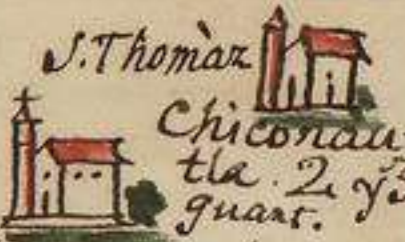 S. Thomàz
Chiconau
tla. 2 ys
guans.